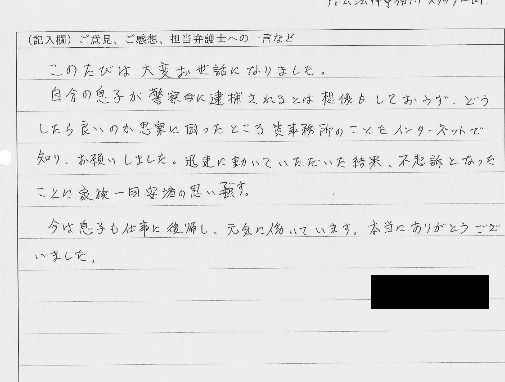 (記入欄) ご意見、ご感想、担当弁護士への一言など
このたびは大変お世話になりました。
自分の息子が警察に逮捕されるとは想像もしておらず、どう
したら良いのか思案に困ったところ貴事務所のことをインターネットで
知り、お願いしました。迅速に動いていただいた結果、不起訴となった
ことに家族一同安堵の思いです。
今は息子も仕事に復帰し、元気に働いています。本当にありがとうござ
いました。